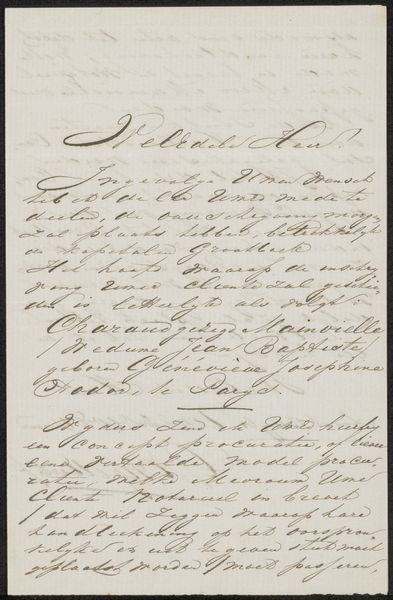 WelEdele Heer!
Ingevolge Uwen wensch
heb ik de eer UwEd mede te
deelen, de overschrijving morgen
zal plaats hebben, betrekkelijk
de Kapitalen Grootboek
Het hoofd waarop de inschrij
ving uwer cliente zal geschie
den is letterlijk als volgt:
Charaud gezegd Mainvielle
/Weduwe Jean Baptiste/
geboren Geneviève Josephine
Fodor, te Parijs.
Wyders zend ik UwEd hierby
een concept procuratie, of liever
eene vertaalde model procu-
ratie, welke Mevrouw Uwe
Client Notarieel in brevet
/dat wil zeggen waarop hare
handteekening op het oorspron-
kelijke en uit te geven stuk moet
geplaatst worden/ moet passeren,